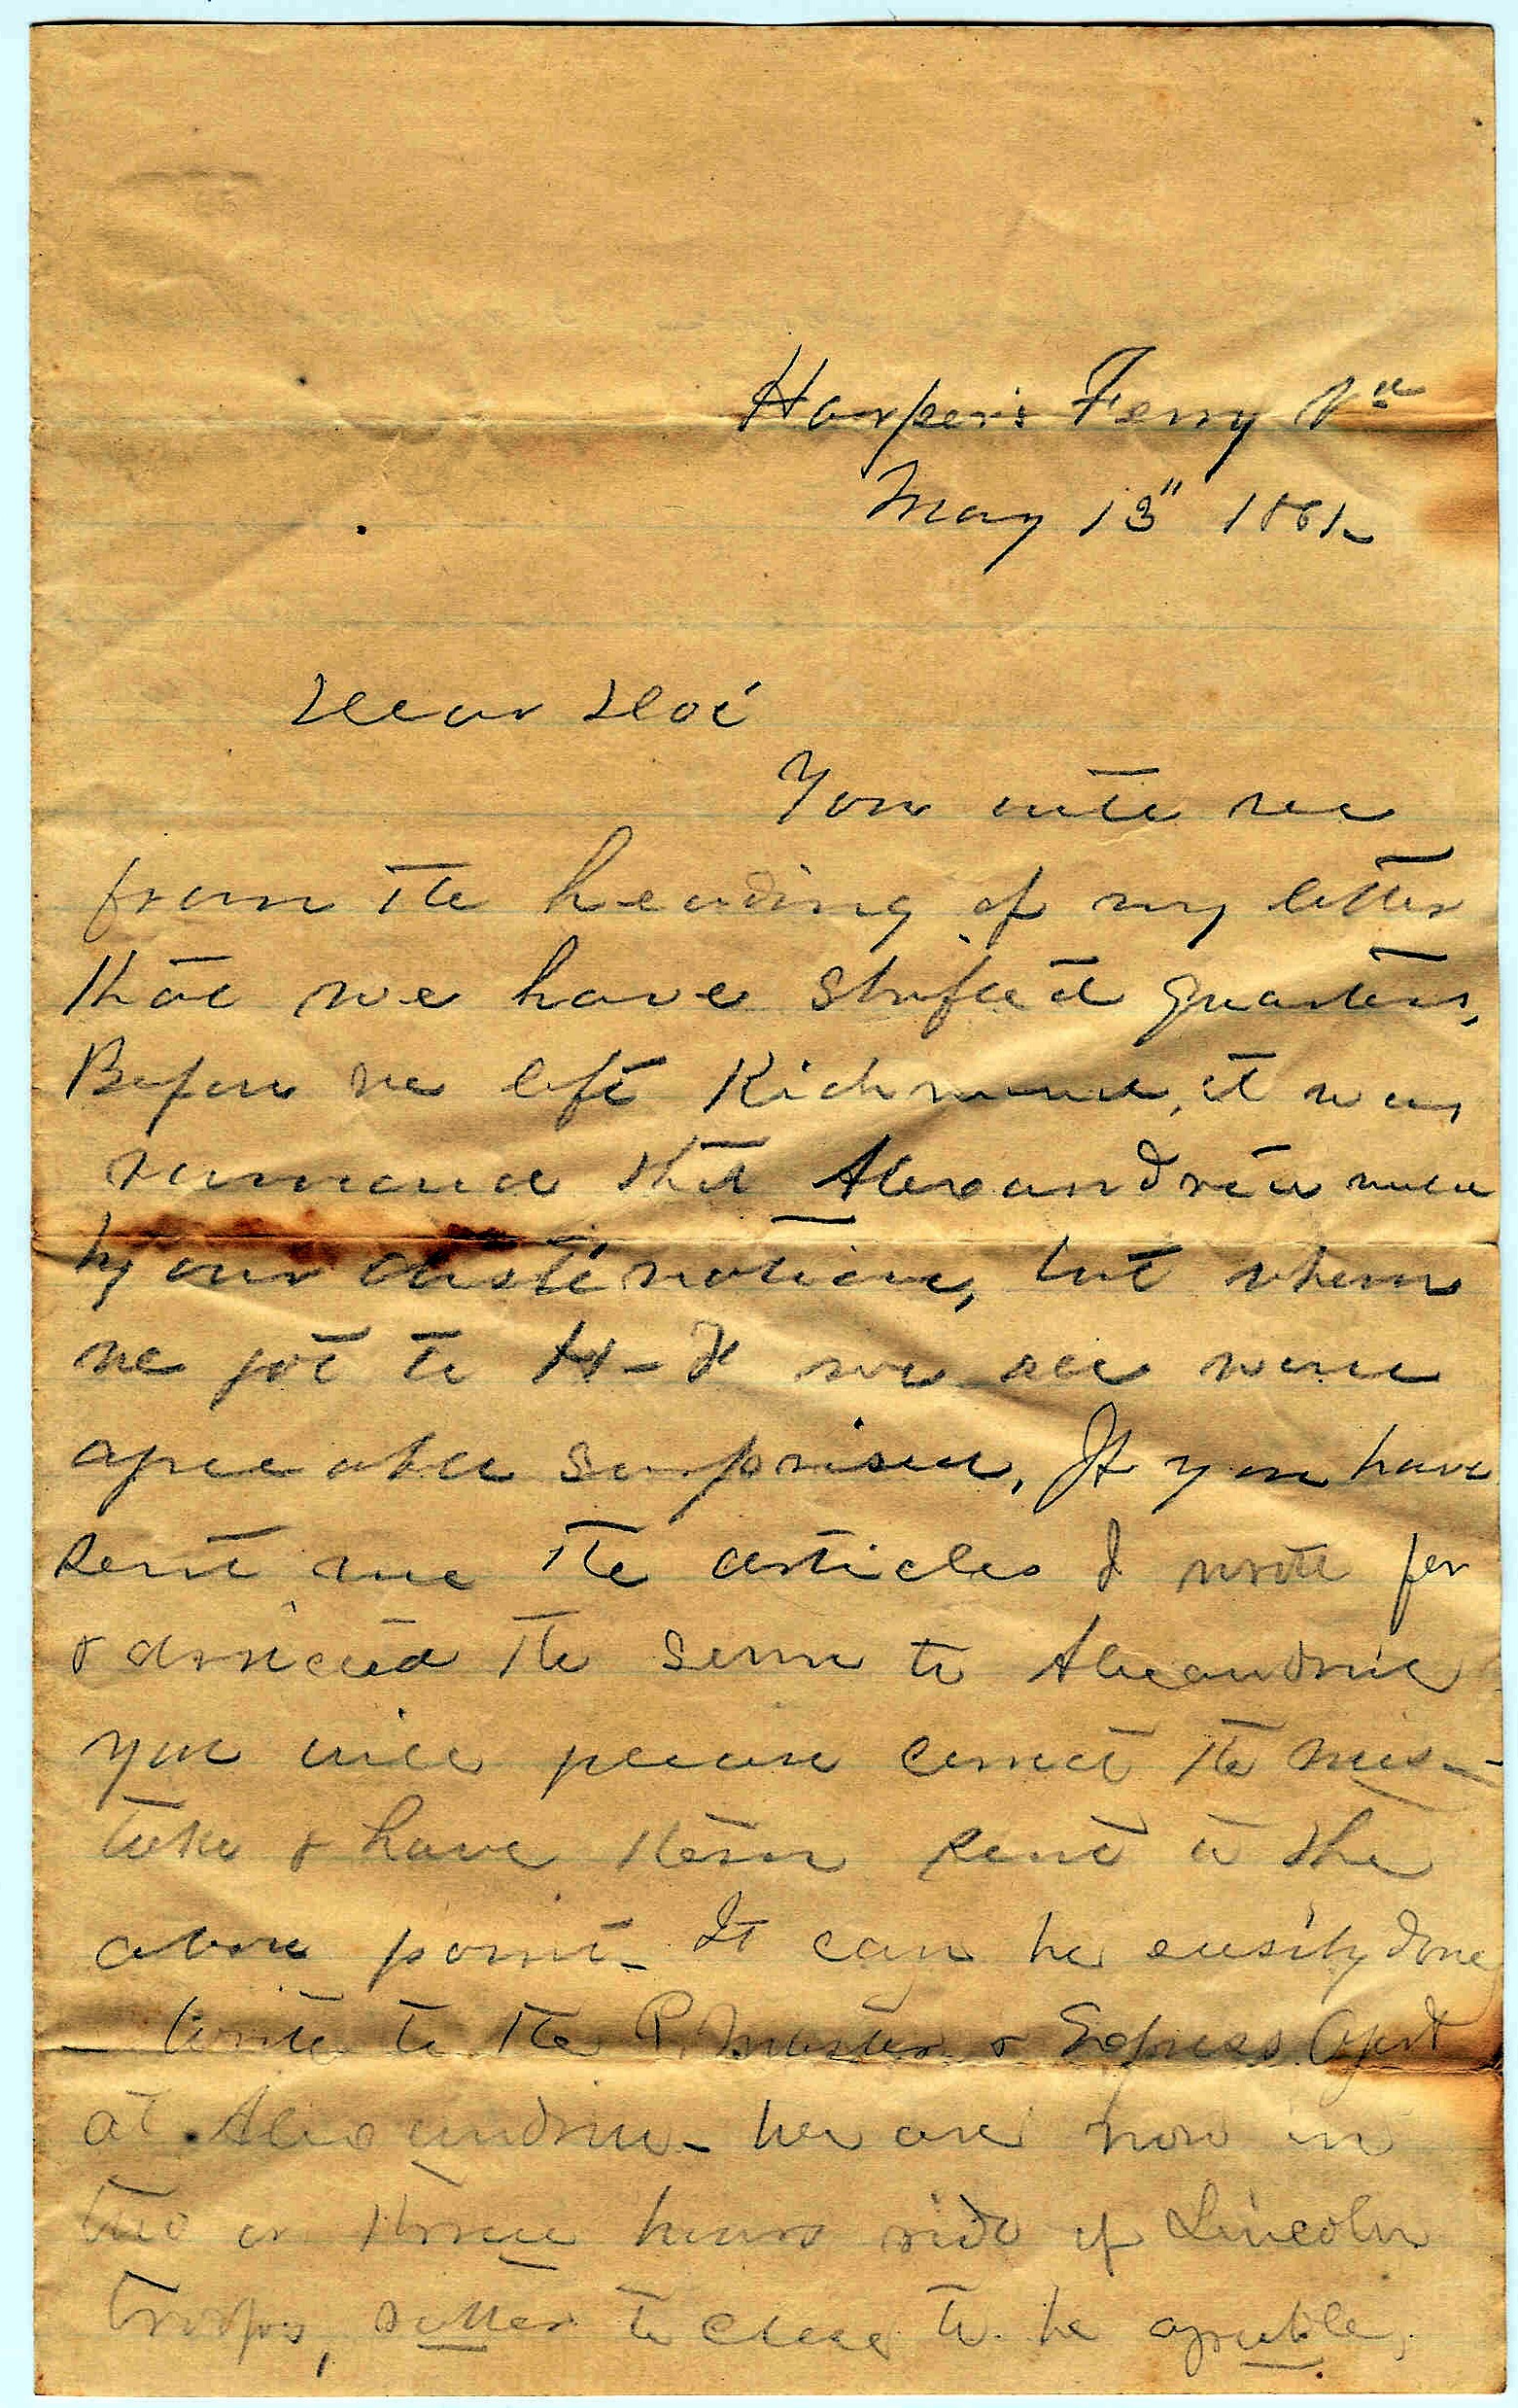 Harper's Ferry Va
May 13" 1861-
Dear Doc
You will see
from the heading of my letter
that we have shifted quarters,
Before we left Richmond, it was
rumored that Alexandria would
by our destination, but when
we got to H-F we all were
agreeable surprised. If you have
sent me the articles I wrote for
& directed the same to Alexandria
you will please correct the mis-
take & have them sent to the
above point- It can be easily done
- write to the P. Master & Express Agent
at Alexandria- We are now in
two or three hours ride of Lincoln
troops, rather to close to be agreeable.